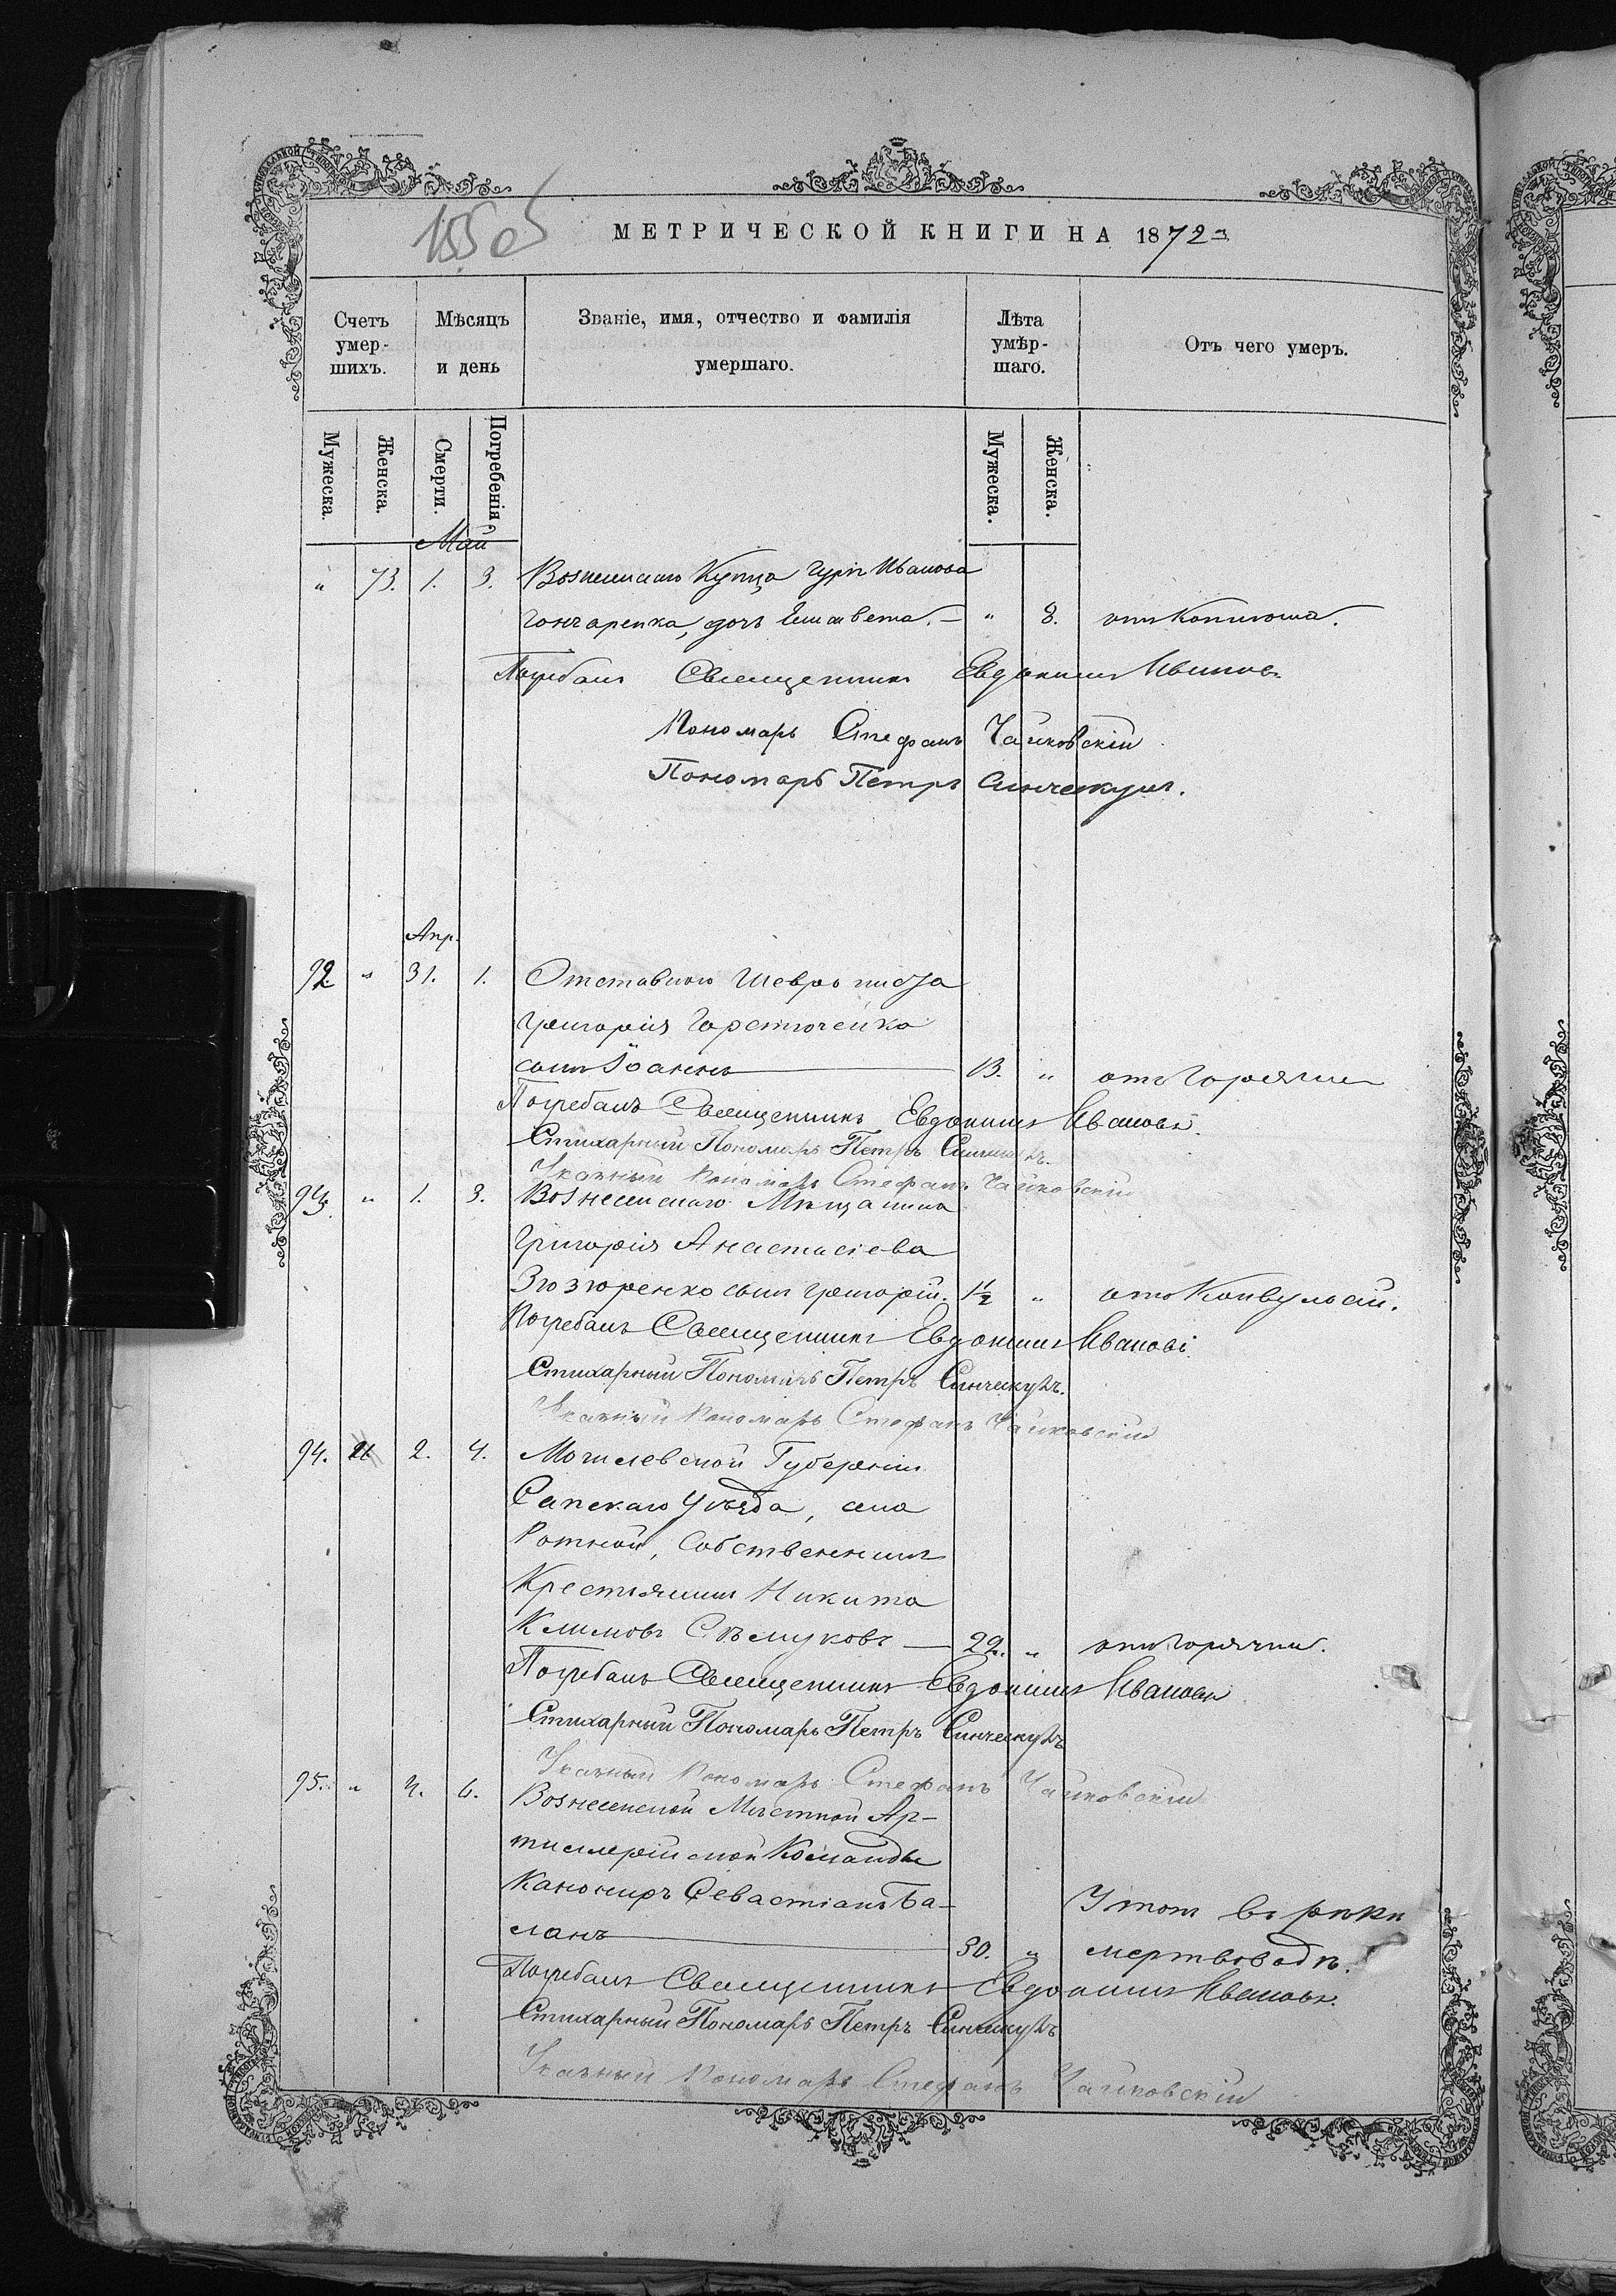 155 об
МЕТРИЧЕСКОЙ КНИГИ НА 1872 г.
Счетъ умер-шихъ.
Мѣсяцъ и день
Званіе, имя, отчество и фамилія умершаго.
Лѣта умѣр-шаго.
Отъ чего умеръ.
Мужеска.
Женска.
Смерти.
Погребенія.
Мужеска.
Женска.
Май
" 73. 1. 3. Вознесенскаго Купца Гурія Иванова
Гончаренка, дочь Елисавета. — " 8. отъ Коклюша.
Погребалъ Священникъ Евдокимъ Ивановъ
Пономарь Стефанъ Чайковскій
Пономарь Петръ Синчекулъ.
Апр.
92 " 31. 1. Отставного
Григорія
сынъ Іоаннъ — 13. " отъ Горячки
Погребалъ Священникъ Евдокимъ Ивановъ.
Стихарный Пономарь Петръ
Указный Пономарь Стефанъ Чайковскій
93. " 1. 3. Вознесенскаго Мѣщанина
Григорія Анастасіева
Зюзюренко сынъ Григорій. 1½ " отъ Конвульсіи.
Погребалъ Священникъ Евдокимъ Ивановъ
Стихарный Пономарь Петръ Синчекулъ.
Указный Пономарь Стефанъ Чайковскій
94. 2. 4. Могилевской Губерніи
уѣзда, села
Ротной, Собственникъ
Крестьянинъ Никита
Климовъ — 22. " отъ горячки.
Погребалъ Священникъ Евдокимъ Ивановъ
Стихарный Пономарь Петръ Синчекулъ
Указный Пономарь Стефанъ Чайковскій
95. " 4. 6. Вознесенской Мѣстной Ар-
тиллерійской Команды
Канониръ Севастіанъ Ба-
ланъ — 30. " Утонъ въ рѣкѣ
мертвоводѣ.
Погребалъ Священникъ Евдокимъ Ивановъ.
Стихарный Пономарь Петръ Синчекулъ
Указный Пономарь Стефанъ Чайковскій